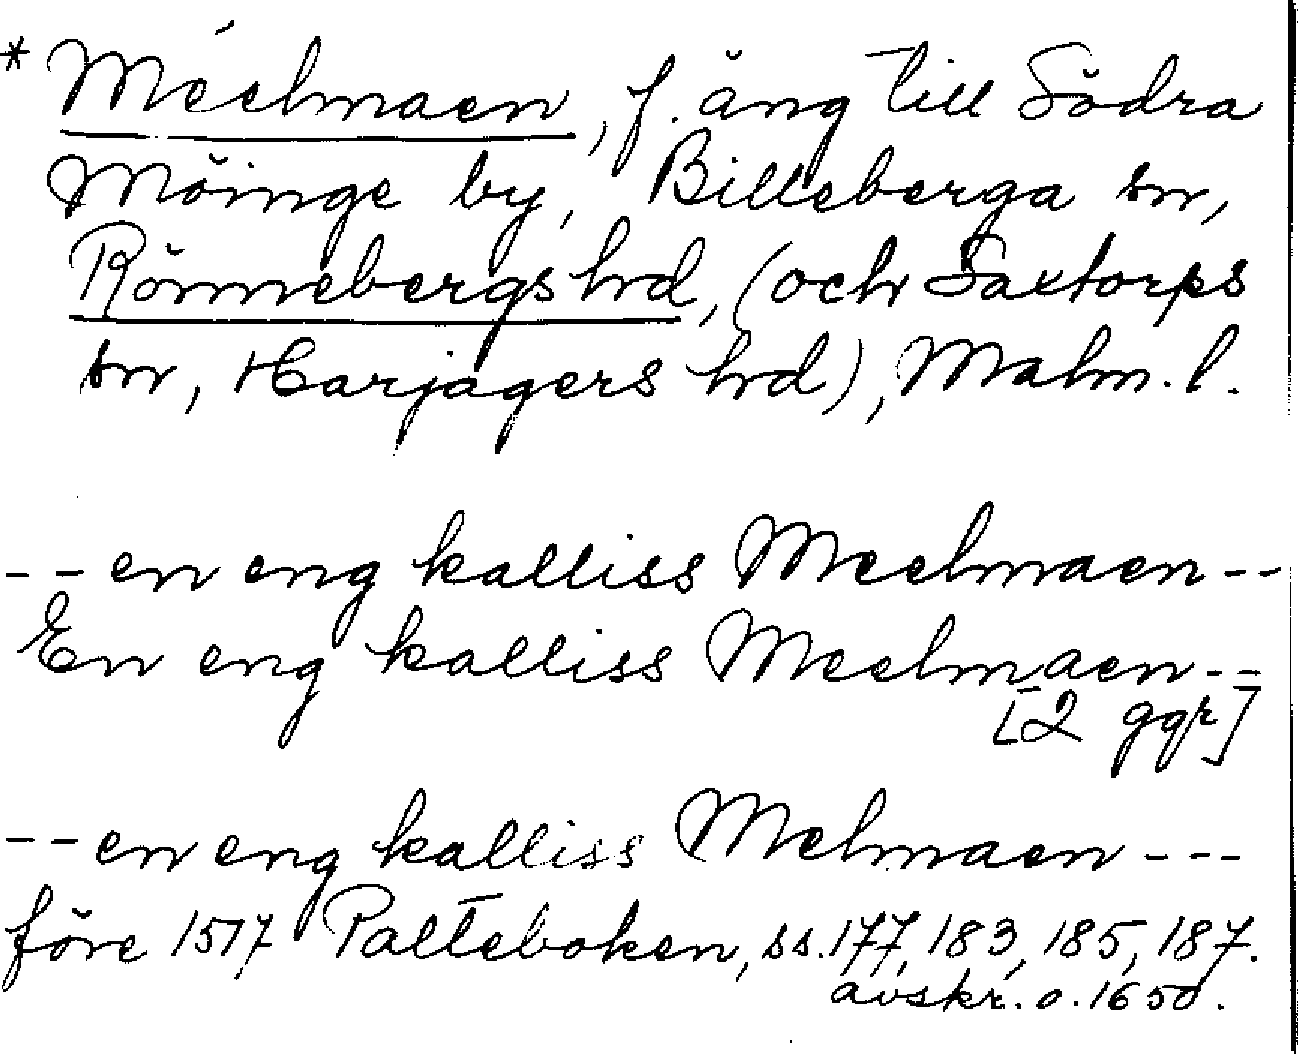 * Méelmaen, f. äng till Södra
Möinge by, Billeberga sn,
Rönnebergs hrd, (och Saxtorps
sn, Harjagers hrd), Malm. l.
-- en eng kalliss Meelmaen --
En eng kalliss Meelmaen --
[2 ggr]
-- en eng kalliss Melmaen ---
före 1517 Palteboken, ss. 177, 183, 185, 187.
avskr. o. 1650.